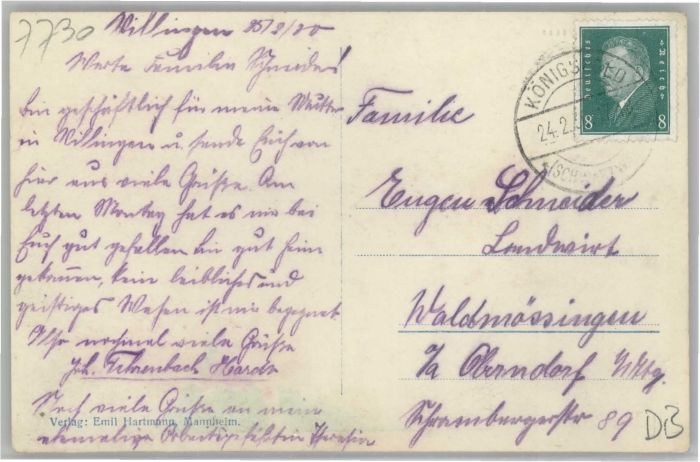 7730
Villingen 25/2/30
Werte Familie Schneider!
Bin geschäftlich für meine Mutter
in Villingen u. sende Euch von
hier aus viele Grüße. Am
letzten Montag hat es mir bei
Euch gut gefallen bin gut heim
gekommen, kein leibliches und
geistiges Wesen ist mir begegnet
nochmal viele Grüße
Joh. Fehrenbach
Noch viele Grüße an meine
ehemalige Arbeitsgefährtin Theresia
Verlag: Emil Hartmann, Mannheim.
Deutsches Reich
8 8
KÖNIGSFELD
24.2.
(SCHWARZW
Familie
Eugen Schneider
Landwirt
Waldmössingen
O/a Oberndorf Wttbg.
Schrambergerstr 89
DB